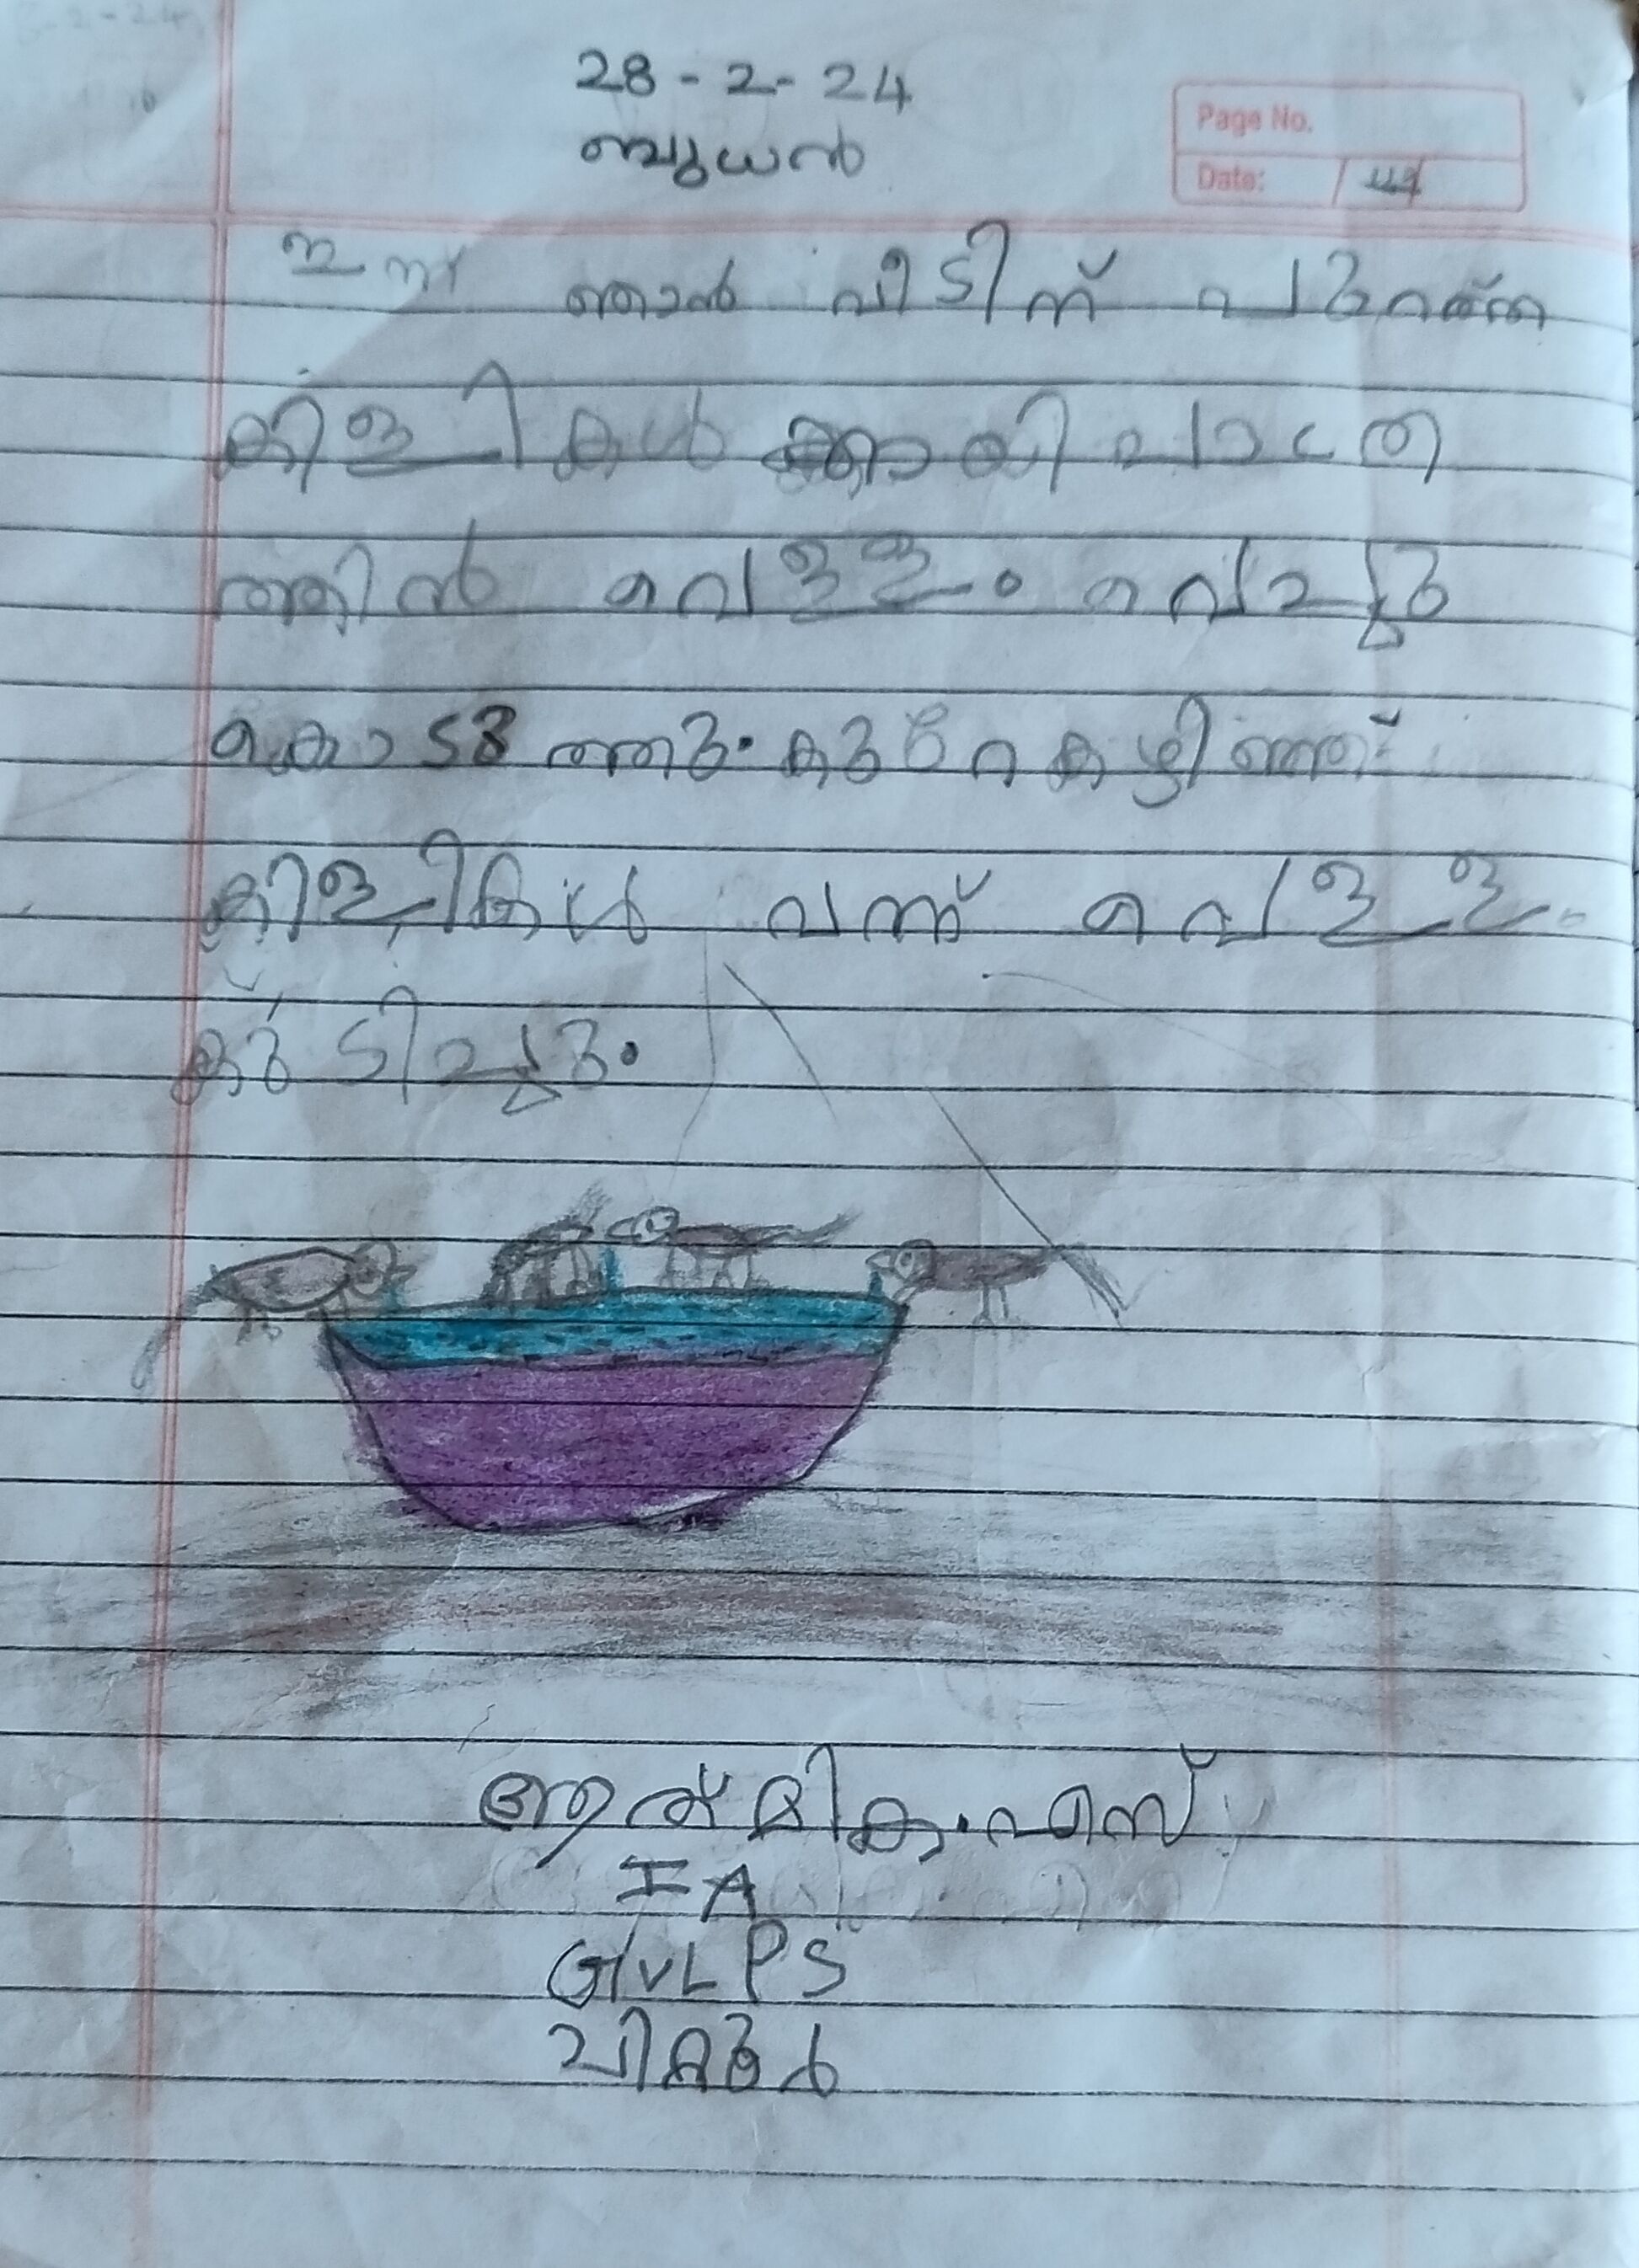 28-2-24
ബുധൻ
Page No.
Date:
ഇന്ന് ഞാൻ വീടിന് പുറത്ത
കിളികൾക്കായി പാത്ര
ത്തിൽ വെള്ളം വെച്ചു
കൊടുത്തു. കുറേകഴിഞ്ഞ്
കിളികൾ വന്ന് വെള്ളം
കുടിച്ചു.
ആത്മിക. എസ്
I A
GVLPS
ചിറ്റൂർ